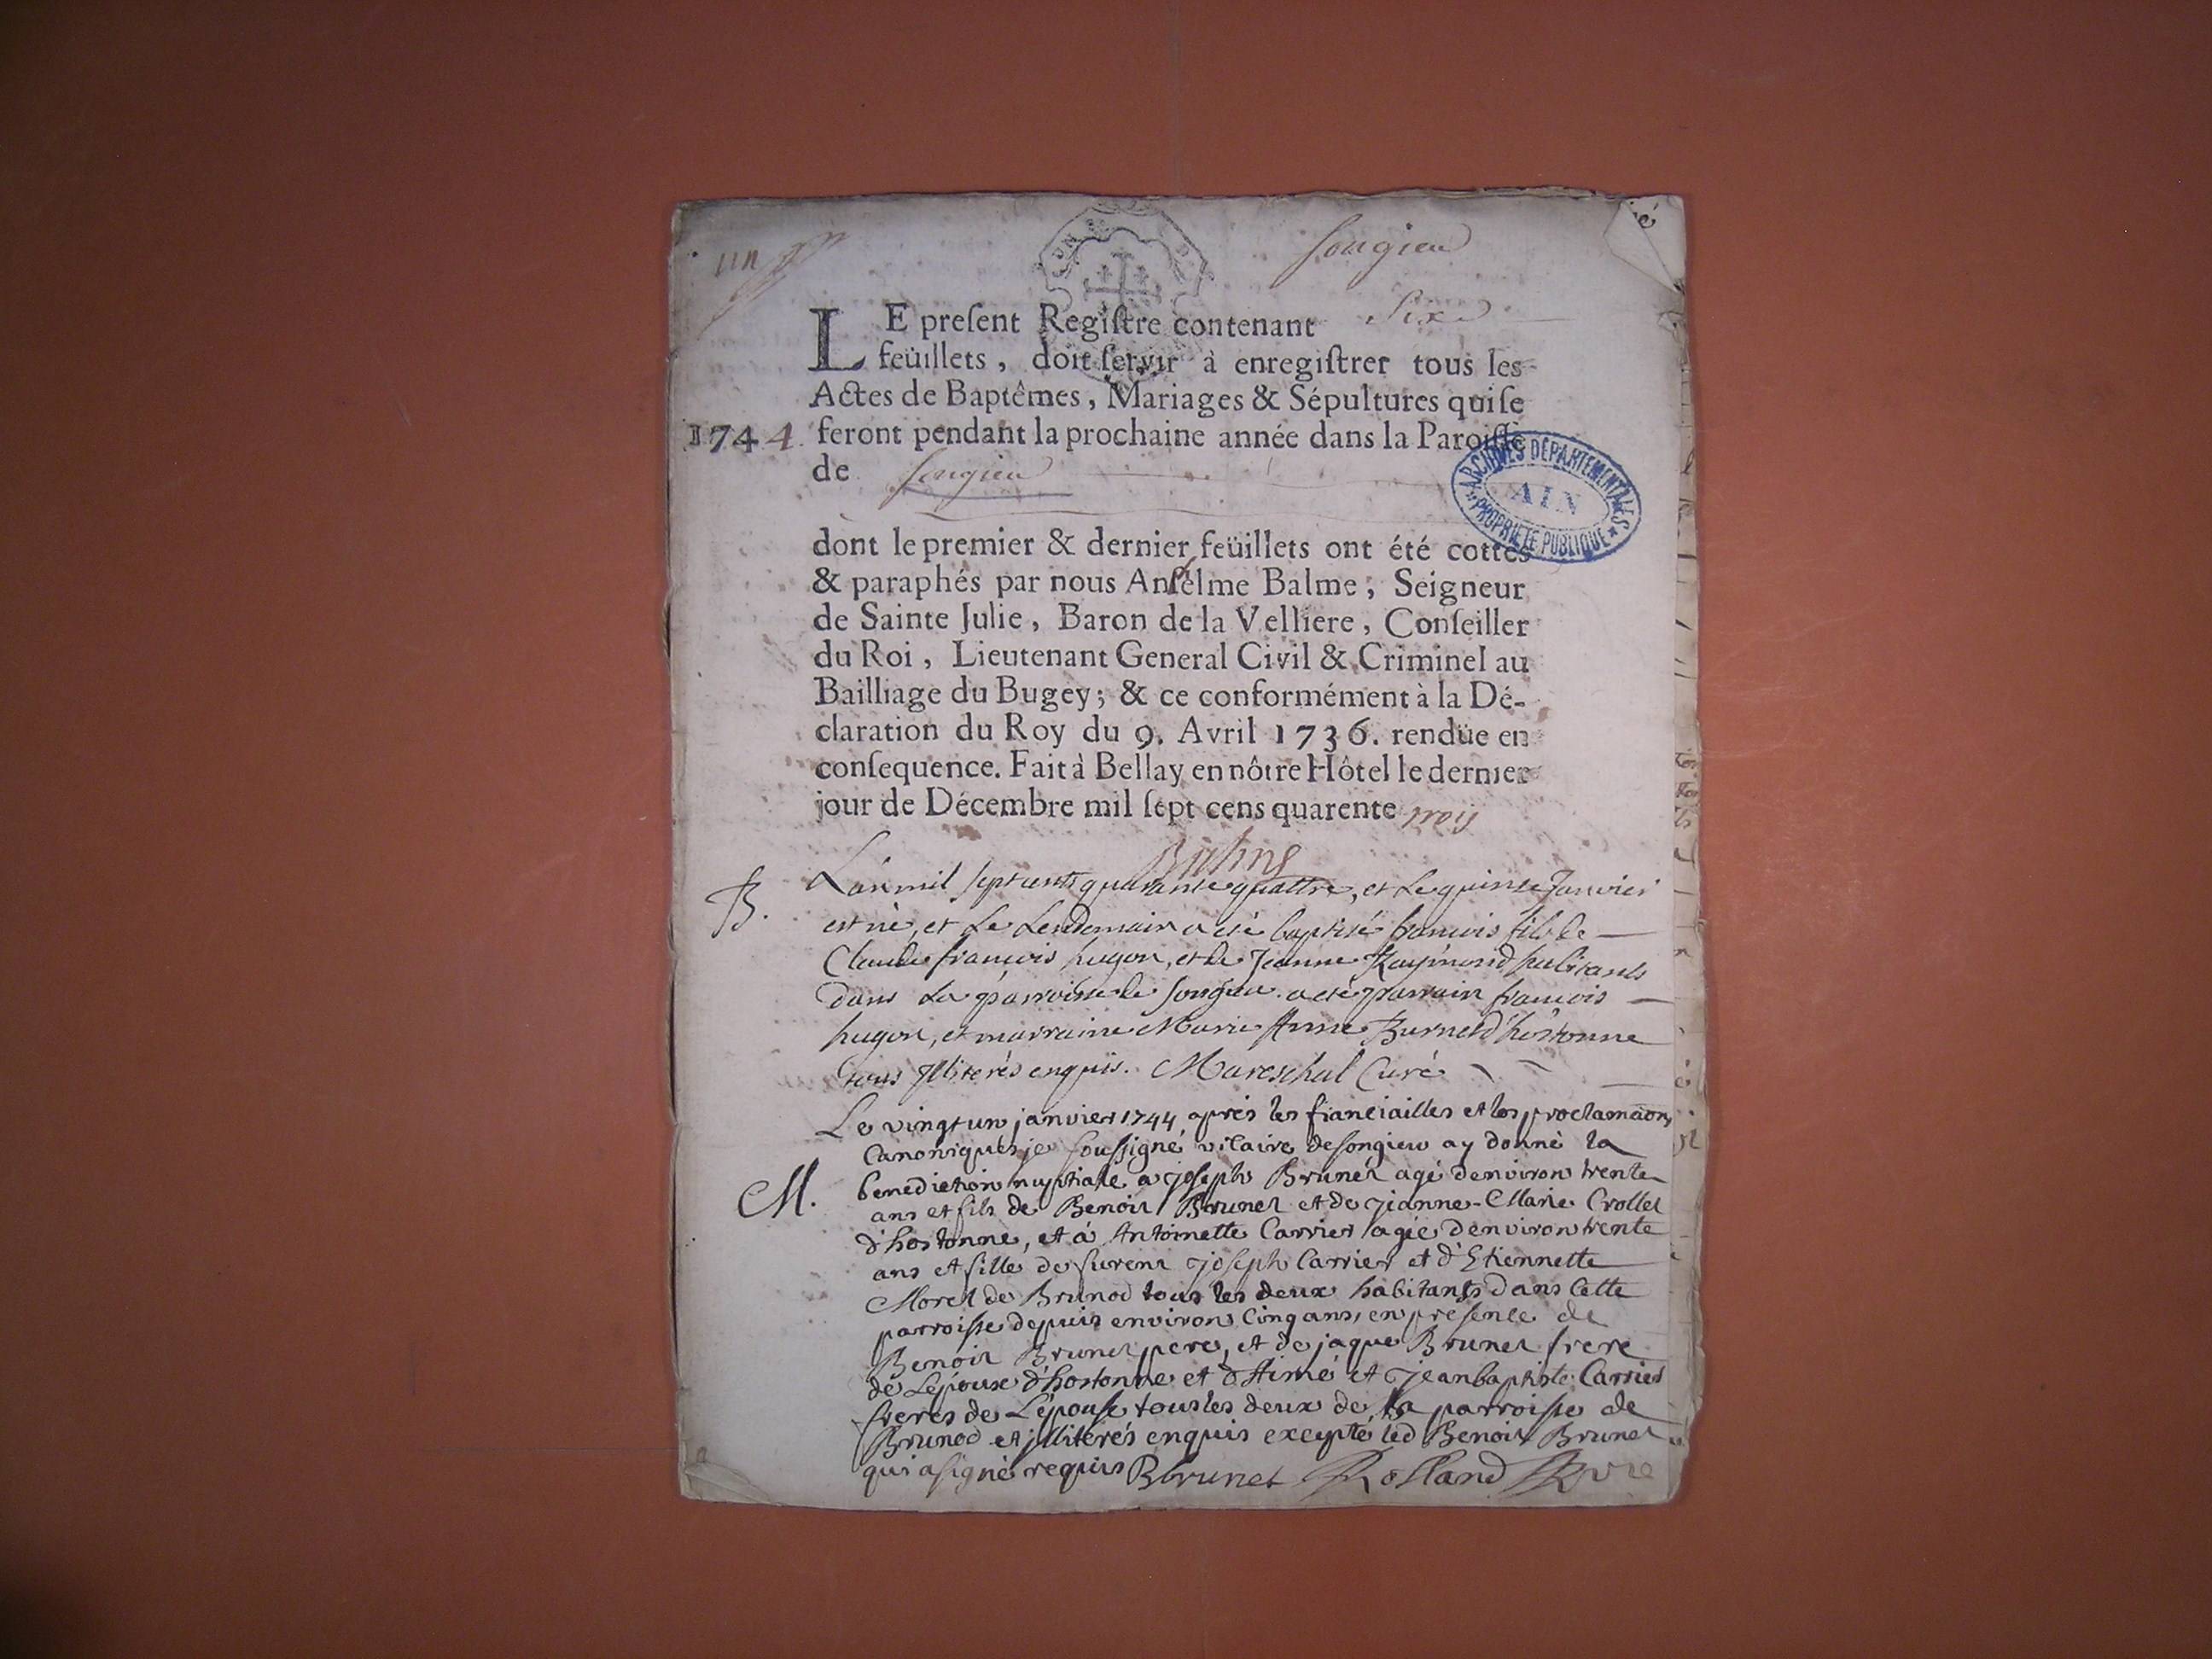 un
Songieu
LE preſent Regiſtre contenant Six
feüillets, doit ſervir à enregiſtrer tous les
Actes de Baptêmes, Mariages & Sépultures qui ſe
1744. feront pendant la prochaine année dans la Paroiſſe
de Songieu
ARCHIVES DÉPARTEMENTALES
AIN
PROPRIÉTÉ PUBLIQUE
dont le premier & dernier feüillets ont été cottés
& paraphés par nous Anſelme Balme, Seigneur
de Sainte Julie, Baron de la Velliere, Conſeiller
du Roi, Lieutenant General Civil & Criminel au
Bailliage du Bugey; & ce conformément à la Dé-
claration du Roy du 9. Avril 1736. rendüe en
conſequence. Fait à Bellay en nôtre Hôtel le dernier
jour de Décembre mil ſept cens quarente trois
L'an mil sept cents quarante quattre, et Le quinze Janvier
B.
est né, et Le Lendemain a été baptisé francois fils de
Claude francois hugon, et de Jeanne Raymond habitants
dans La parroisse de songieu. a été parrain francois
hugon, et marraine Marie Anne Burnet d'hostonne
tous Jlliterés enquis. Mareschal Curé
Le vingt un janvier 1744 aprés les fianciailles et les proclamaõns
Canoniques je soussigné vicaire de songieu ay donné la
M. benediction nuptiale a joseph Brunet agé denviron trente
ans et fils de Benoit Brunet et de jeanne-Marie Crollet
d'hostonne, et á Antoinette Carrier agée denviron trente
ans et fille de furent joseph Carrier et d'Etiennette
Moret de Brunod tous les deux habitants dans Cette
parroisse depuis environ Cinq ans, en presence de
Benoit Brunet pere, et de jaque Brunet frere
de Lépoux d'hostonne et d'Aimé et jeanbaptiste Carrier
freres de L'épouse tous les deux de la parroisse de
Brunod et jlliterés enquis excepté led Benoit Brunet
qui a signé requis BBrunet Rolland vre